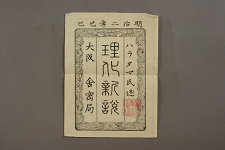 明治二年己巳
ハラタマ氏述
理化新説
大阪 舎密局